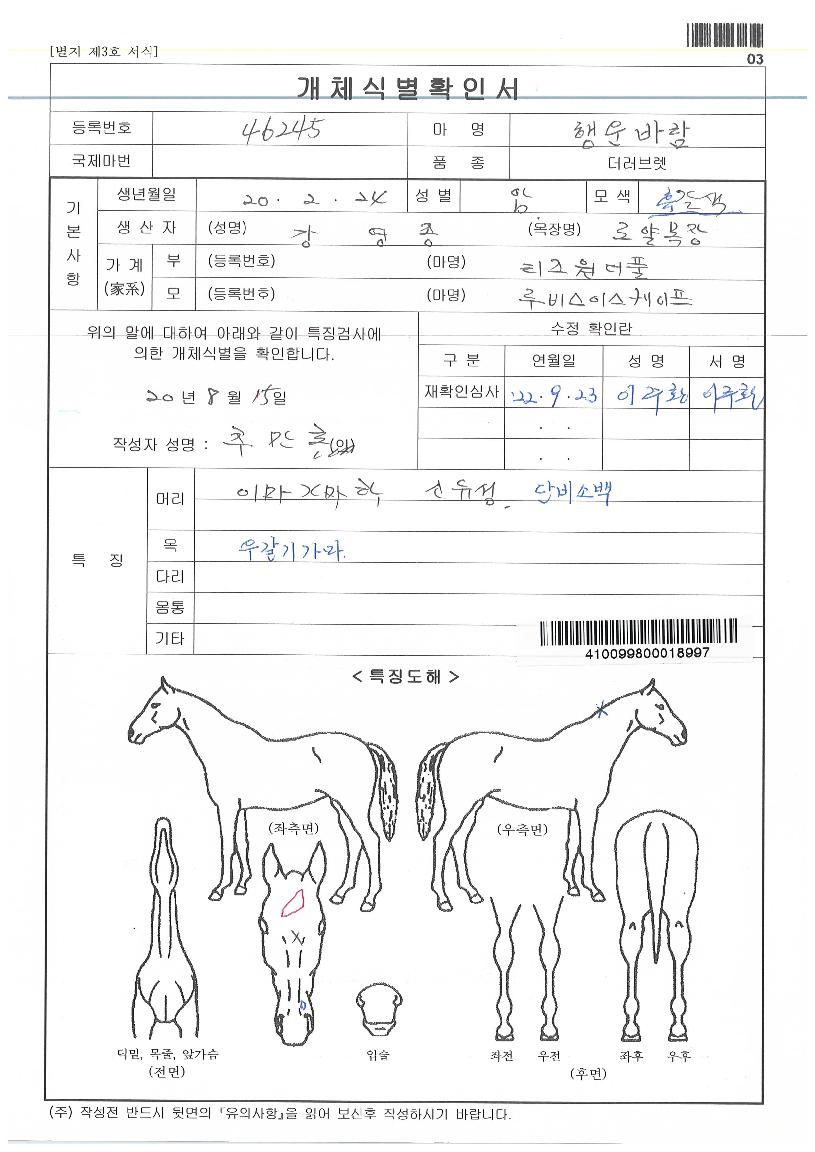 [별지 제3호 서식]
03
개체식별확인서
등록번호 46245 마 명 행운바람
국제마번 품 종 더러브렛
기본사항
생년월일 20 . 2 . 24 성별 암 모색 흑갈색
생 산 자 (성명) 강 영 종 (목장명) 로얄목장
가 계 (家系)
부 (등록번호) (마명) 티즈원더풀
모 (등록번호) (마명) 루비스이스케이프
위의 말에 대하여 아래와 같이 특징검사에
의한 개체식별을 확인합니다.
20 년 8 월 15일
작성자 성명 : 추 민 훈 (인)
수정 확인란
구 분 연월일 성 명 서 명
재확인심사 '22 . 9 . 23 이주환 이주환
. .
. .
특 징
머리 이마 단비소백
목 우갈기가마
다리
몸통
기타
410099800018997
< 특징도해 >
(좌측면) (우측면)
턱밑, 목줄, 앞가슴 입술 좌전 우전 좌후 우후
(전면) (후면)
(주) 작성전 반드시 뒷면의 『유의사항』을 읽어 보신후 작성하시기 바랍니다.